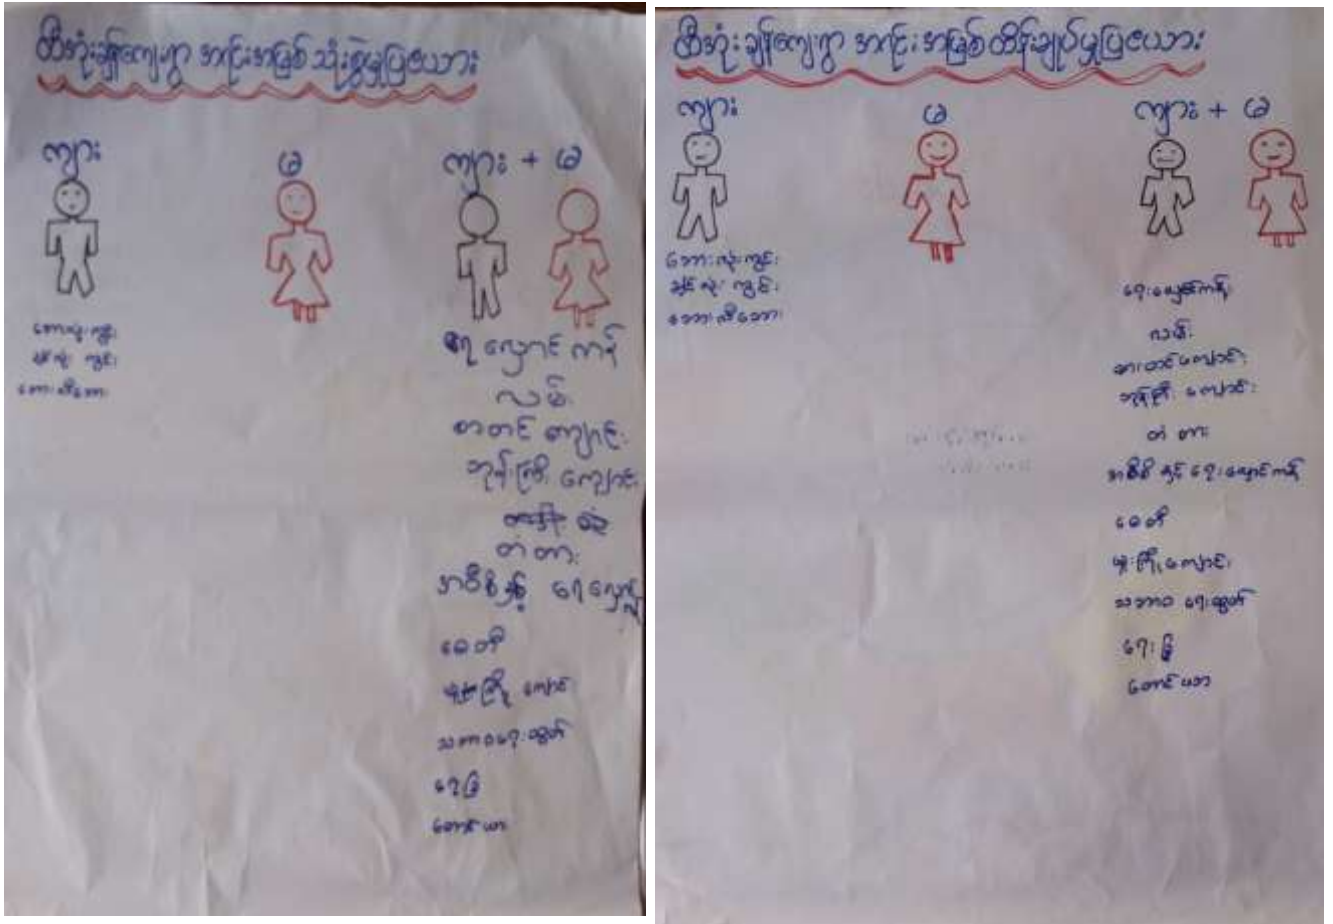 ထီအုံးချိန်ကျေးရွာ အရင်းအမြစ် သုံးစွဲမှုပြဇယား
ကျား
မ
ကျား + မ
ဘောလုံးကွင်း
ချင်းလုံး ကွင်း
ဘောလီဘော
ရေ လှောင် ကန်
လမ်း
စာသင် ကျောင်း
ဘုန်းကြီး ကျောင်း
တံ တား
အဝီစိနှင့် ရေလှောင်
စေတီ
မူကြို ကျောင်း
သဘာဝရေထွက်
တောင်ယာ
ထီအုံးချိန်ကျေးရွာ အရင်းအမြစ် ထိန်းချုပ်မှုပြဇယား
ကျား
မ
ကျား + မ
ဘောလုံးကွင်း
ချင်းလုံး ကွင်း
ဘောလီဘော
ရေလှောင်ကန်
လမ်း
စာသင်ကျောင်း
ဘုန်းကြီး ကျောင်း
တံ တား
အဝီစိ နှင့် ရေလှောင်ကန်
စေတီ
မူကြိုကျောင်း
သဘာဝ ရေထွက်